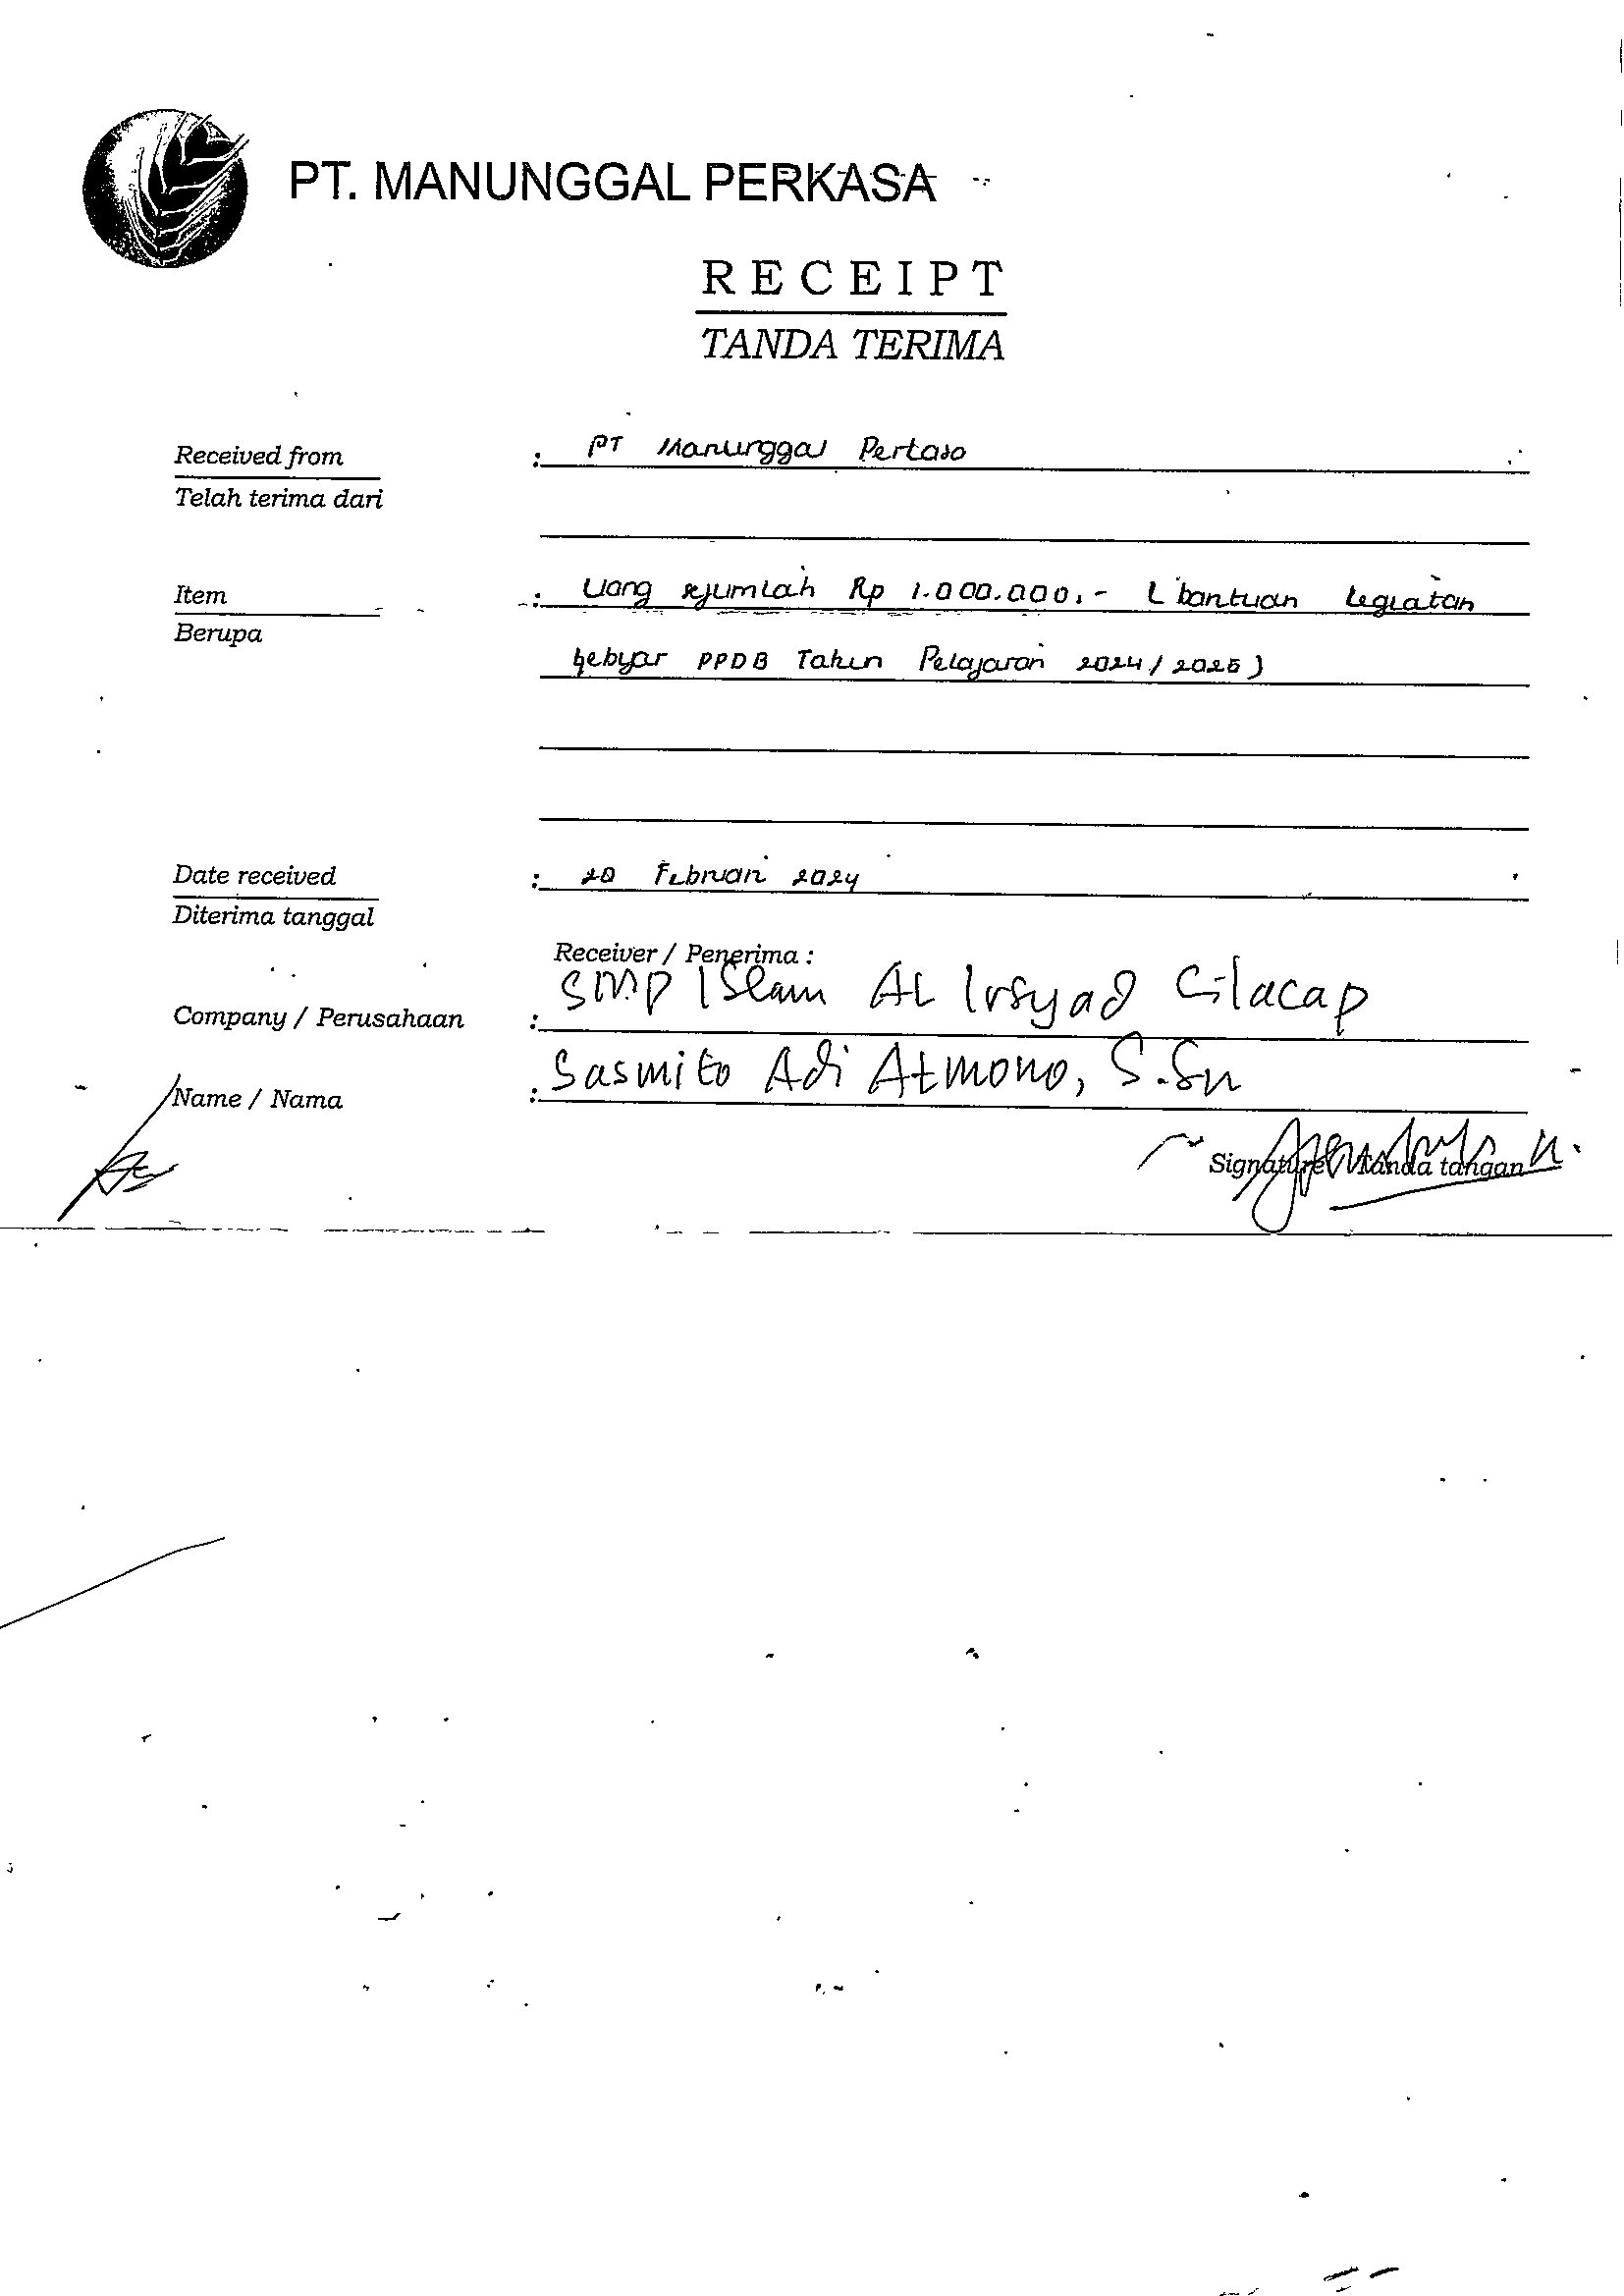 PT. MANUNGGAL PERKASA
RECEIPT
TANDA TERIMA
Received from : PT Manunggal Perkasa
Telah terima dari
Item : Uang sejumlah Rp 1.000.000,- ( bantuan kegiatan
Berupa
gebyar PPDB Tahun Pelajaran 2024/2025)
Date received : 20 Februari 2024
Diterima tanggal
Receiver / Penerima :
Company / Perusahaan : SMP Islam AL Irsyad Cilacap
Name / Nama : Sasmito Adi Atmono, S.Sn
Signature / Tanda tangan